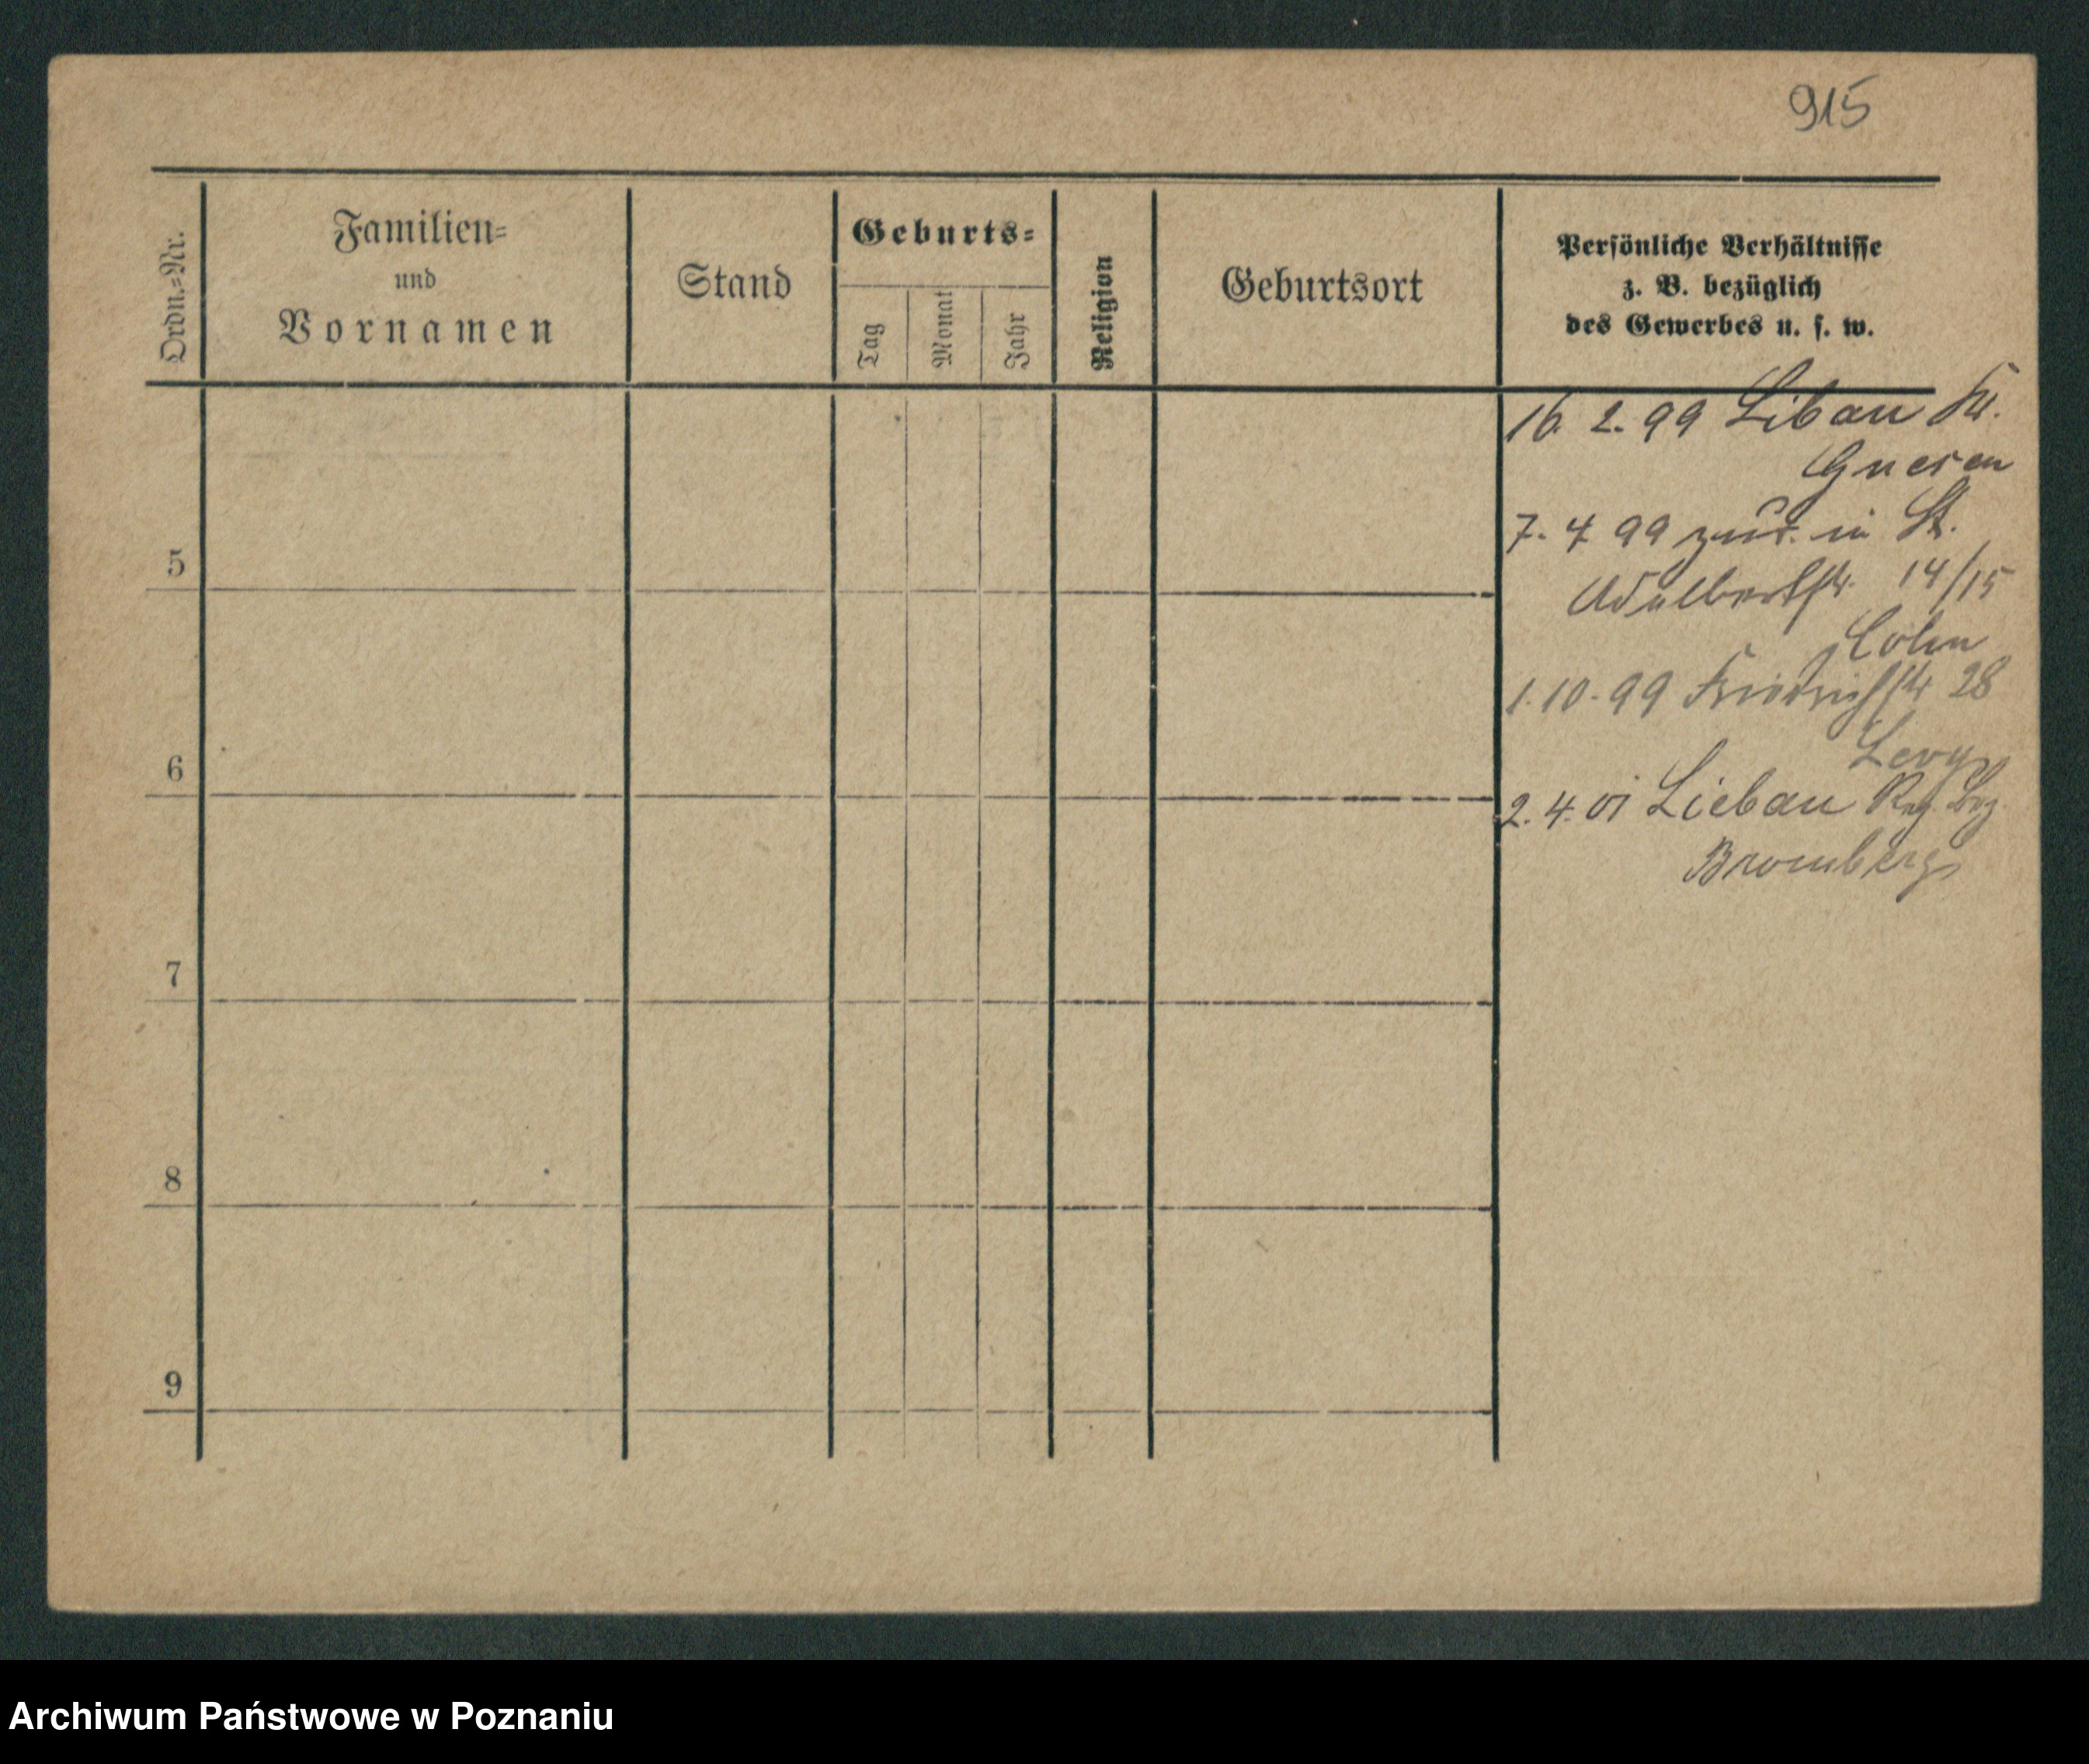 915
Ordn.=Nr.
Familien=
und
Vornamen
Stand
Geburts=
Tag
Monat
Jahr
Religion
Geburtsort
Persönliche Verhältnisse
z. B. bezüglich
des Gewerbes u. s. w.
16. 2. 99 Libau Kr.
Gnesen
7. 4 99 zur. in St.
5
Adalbertstr. 14/15
Cohn
1. 10. 99 Friedrichstr 28
Levy
6
2. 4. 01 Liebau Reg. Bez.
Bromberg
7
8
9
Archiwum Państwowe w Poznaniu